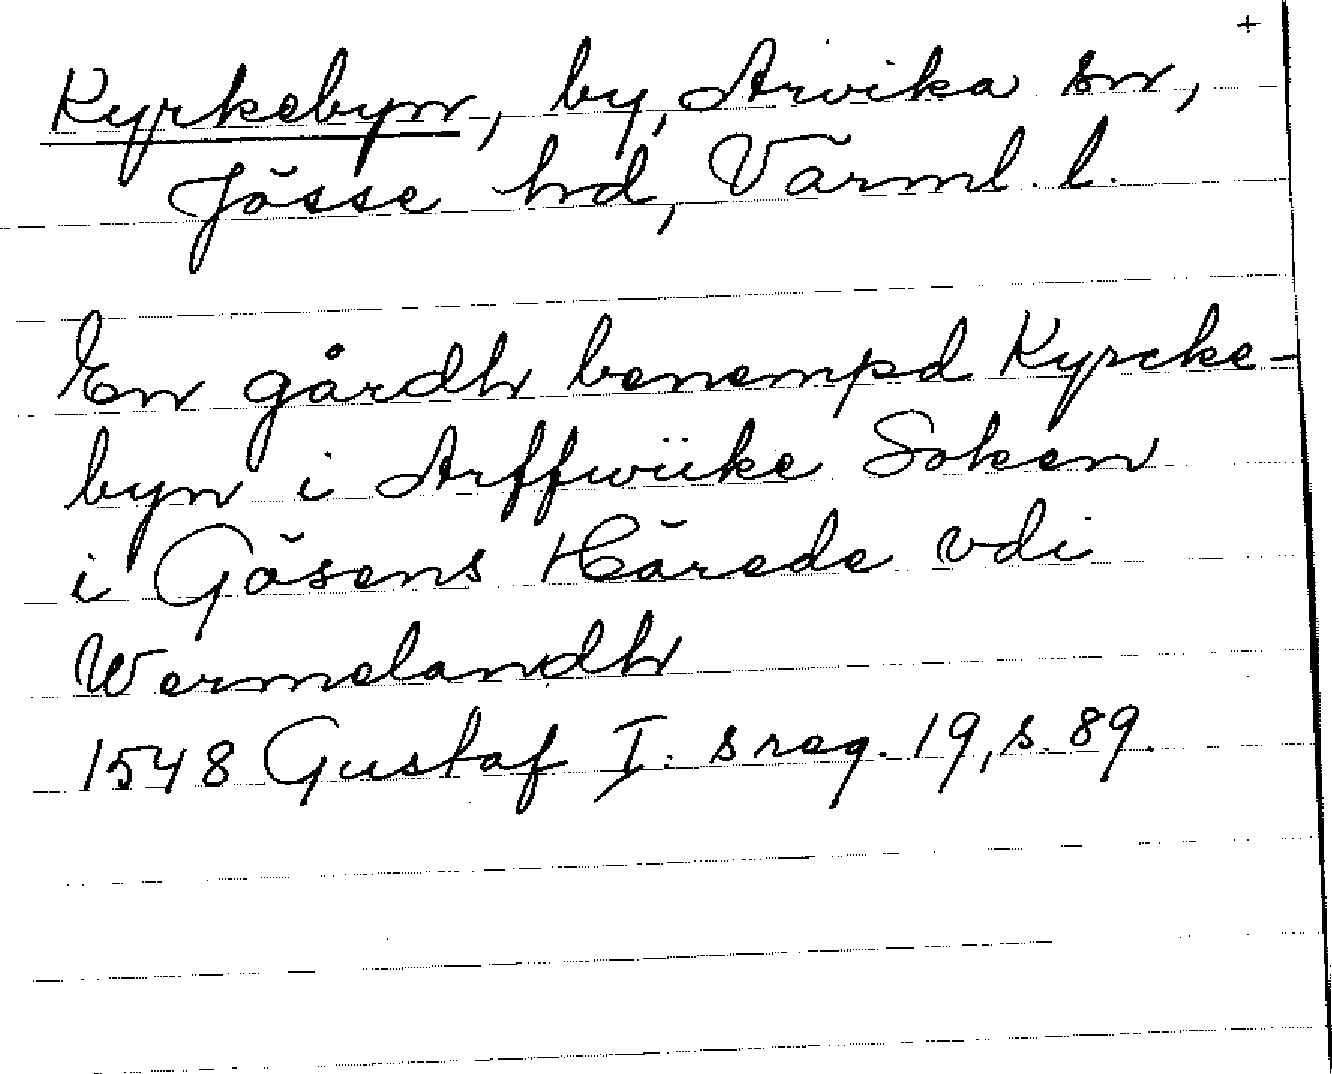 +
Kyrkebyn, by, Arvika sn,
Jösse hd, Värml. l.
En gårdh benempd Kyrcke-
byn i Arffwiike Soken
i Gösens Härede vdi
Wermelandh
1548 Gustaf I:s reg. 19, s. 89.